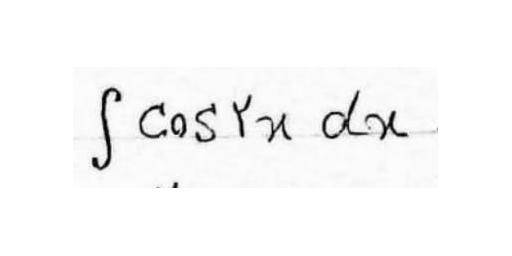 ∫ cos ۲x dx